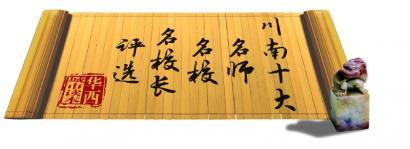 川南十大
名师
名校
名校长
评选
华西